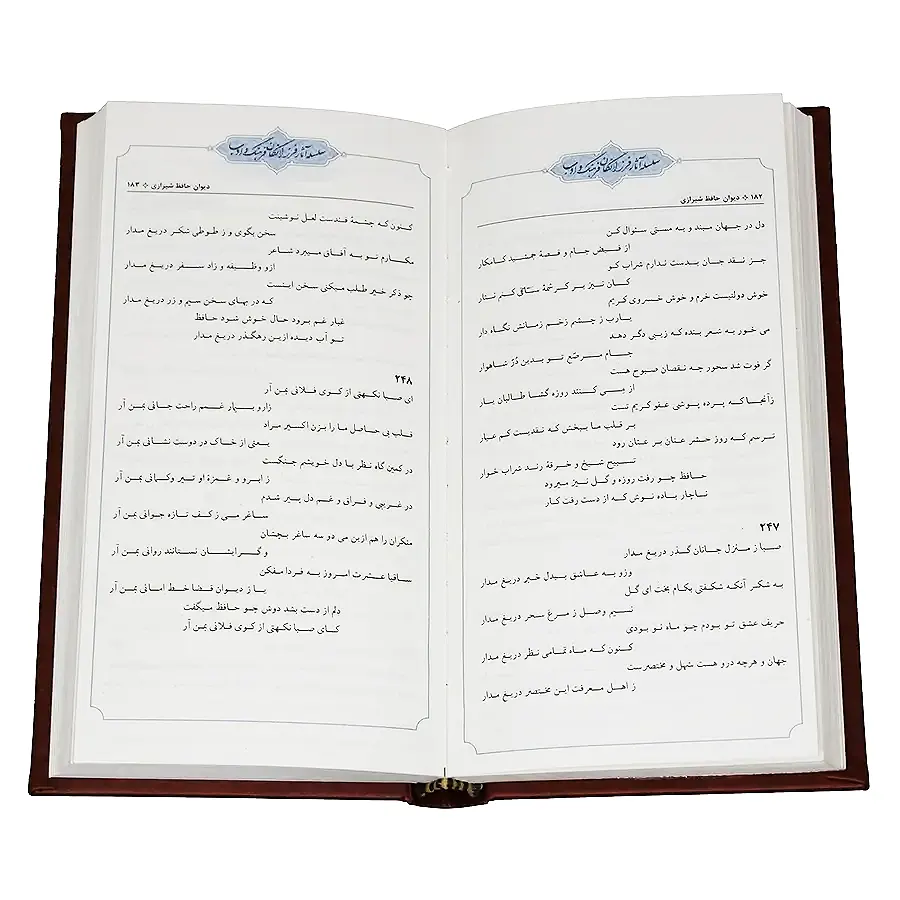 سلسله آثار فرزانگان فرهنگ و ادب
۱۸۲ ❖ دیوان حافظ شیرازی
دل در جهان مبند و به مستی سئوال کن
از فیض جام و قصهٔ جمشید کامکار
جز نقد جان بدست ندارم شراب کو
کان نیز بر کرشمهٔ ساقی کنم نثار
خوش دولتیست خرم و خوش خسروی کریم
یارب ز چشم زخم زمانش نگاه دار
می خور به شعر بنده که زیبی دگر دهد
جام مرصّع تو بدین دُرّ شاهوار
گر فوت شد سحور چه نقصان صبوح هست
از می کنند روزه گشا طالبان یار
زآنجا که پرده پوشی عفو کریم تست
بر قلب ما ببخش که نقدیست کم عیار
ترسم که روز حشر عنان بر عنان رود
تسبیح شیخ و خرقهٔ رند شراب خوار
حافظ چو رفت روزه و گل نیز میرود
ناچار باده نوش که از دست رفت کار
۲۴۷
صبا ز منزل جانان گذر دریغ مدار
وزو به عاشق بیدل خبر دریغ مدار
به شکر آنکه شکفتی بکام بخت ای گل
نسیم وصل ز مرغ سحر دریغ مدار
حریف عشق تو بودم چو ماه نو بودی
کنون که ماه تمامی نظر دریغ مدار
جهان و هرچه درو هست سهل و مختصرست
ز اهل معرفت این مختصر دریغ مدار
سلسله آثار فرزانگان فرهنگ و ادب
دیوان حافظ شیرازی ❖ ۱۸۳
کنون که چشمهٔ قندست لعل نوشینت
سخن بگوی و ز طوطی شکر دریغ مدار
مکارم تو به آفاق میبرد شاعر
ازو وظیفه و زاد سفر دریغ مدار
چو ذکر خیر طلب میکنی سخن اینست
که در بهای سخن سیم و زر دریغ مدار
غبار غم برود حال خوش شود حافظ
تو آب دیده ازین رهگذر دریغ مدار
۲۴۸
ای صبا نکهتی از کوی فلانی بمن آر
زارو بیمار غمم راحت جانی بمن آر
قلب بی حاصل ما را بزن اکسیر مراد
یعنی از خاک در دوست نشانی بمن آر
در کمین گاه نظر با دل خویشم جنگست
ز ابرو و غمزهٔ او تیر وکمانی بمن آر
در غریبی و فراق و غم دل پیر شدم
ساغر می ز کف تازه جوانی بمن آر
منکران را هم ازین می دو سه ساغر بچشان
وگر ایشان نستانند روانی بمن آر
ساقیا عشرت امروز به فردا مفکن
یا ز دیوان قضا خط امانی بمن آر
دلم از دست بشد دوش چو حافظ میگفت
کای صبا نکهتی از کوی فلانی بمن آر